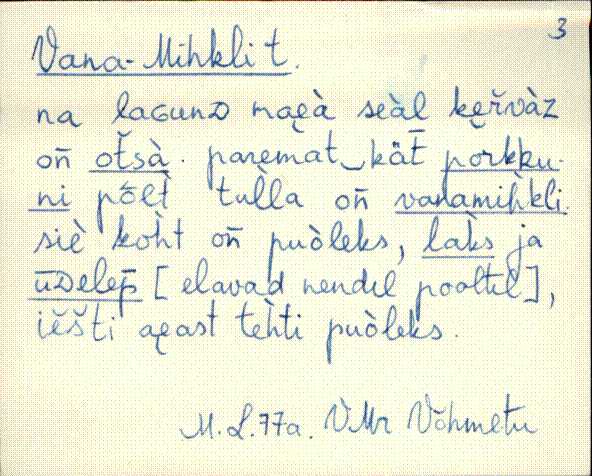 3
Vana-Mihkli t.
na laGunD mae̮à seàl ke̮řvàz
on̄ otšà. paremat‿kät̄ porkku-
ni põlt̀ tul̀la on̄ vanamih̀kli.
siè koh̀t on̄ puòleks, làks ja
ūDelep̄ [elavad nendel pooltel],
iěšti ae̮ast teh̀ti puòleks.
M.L. 77a. VMr Võhmetu